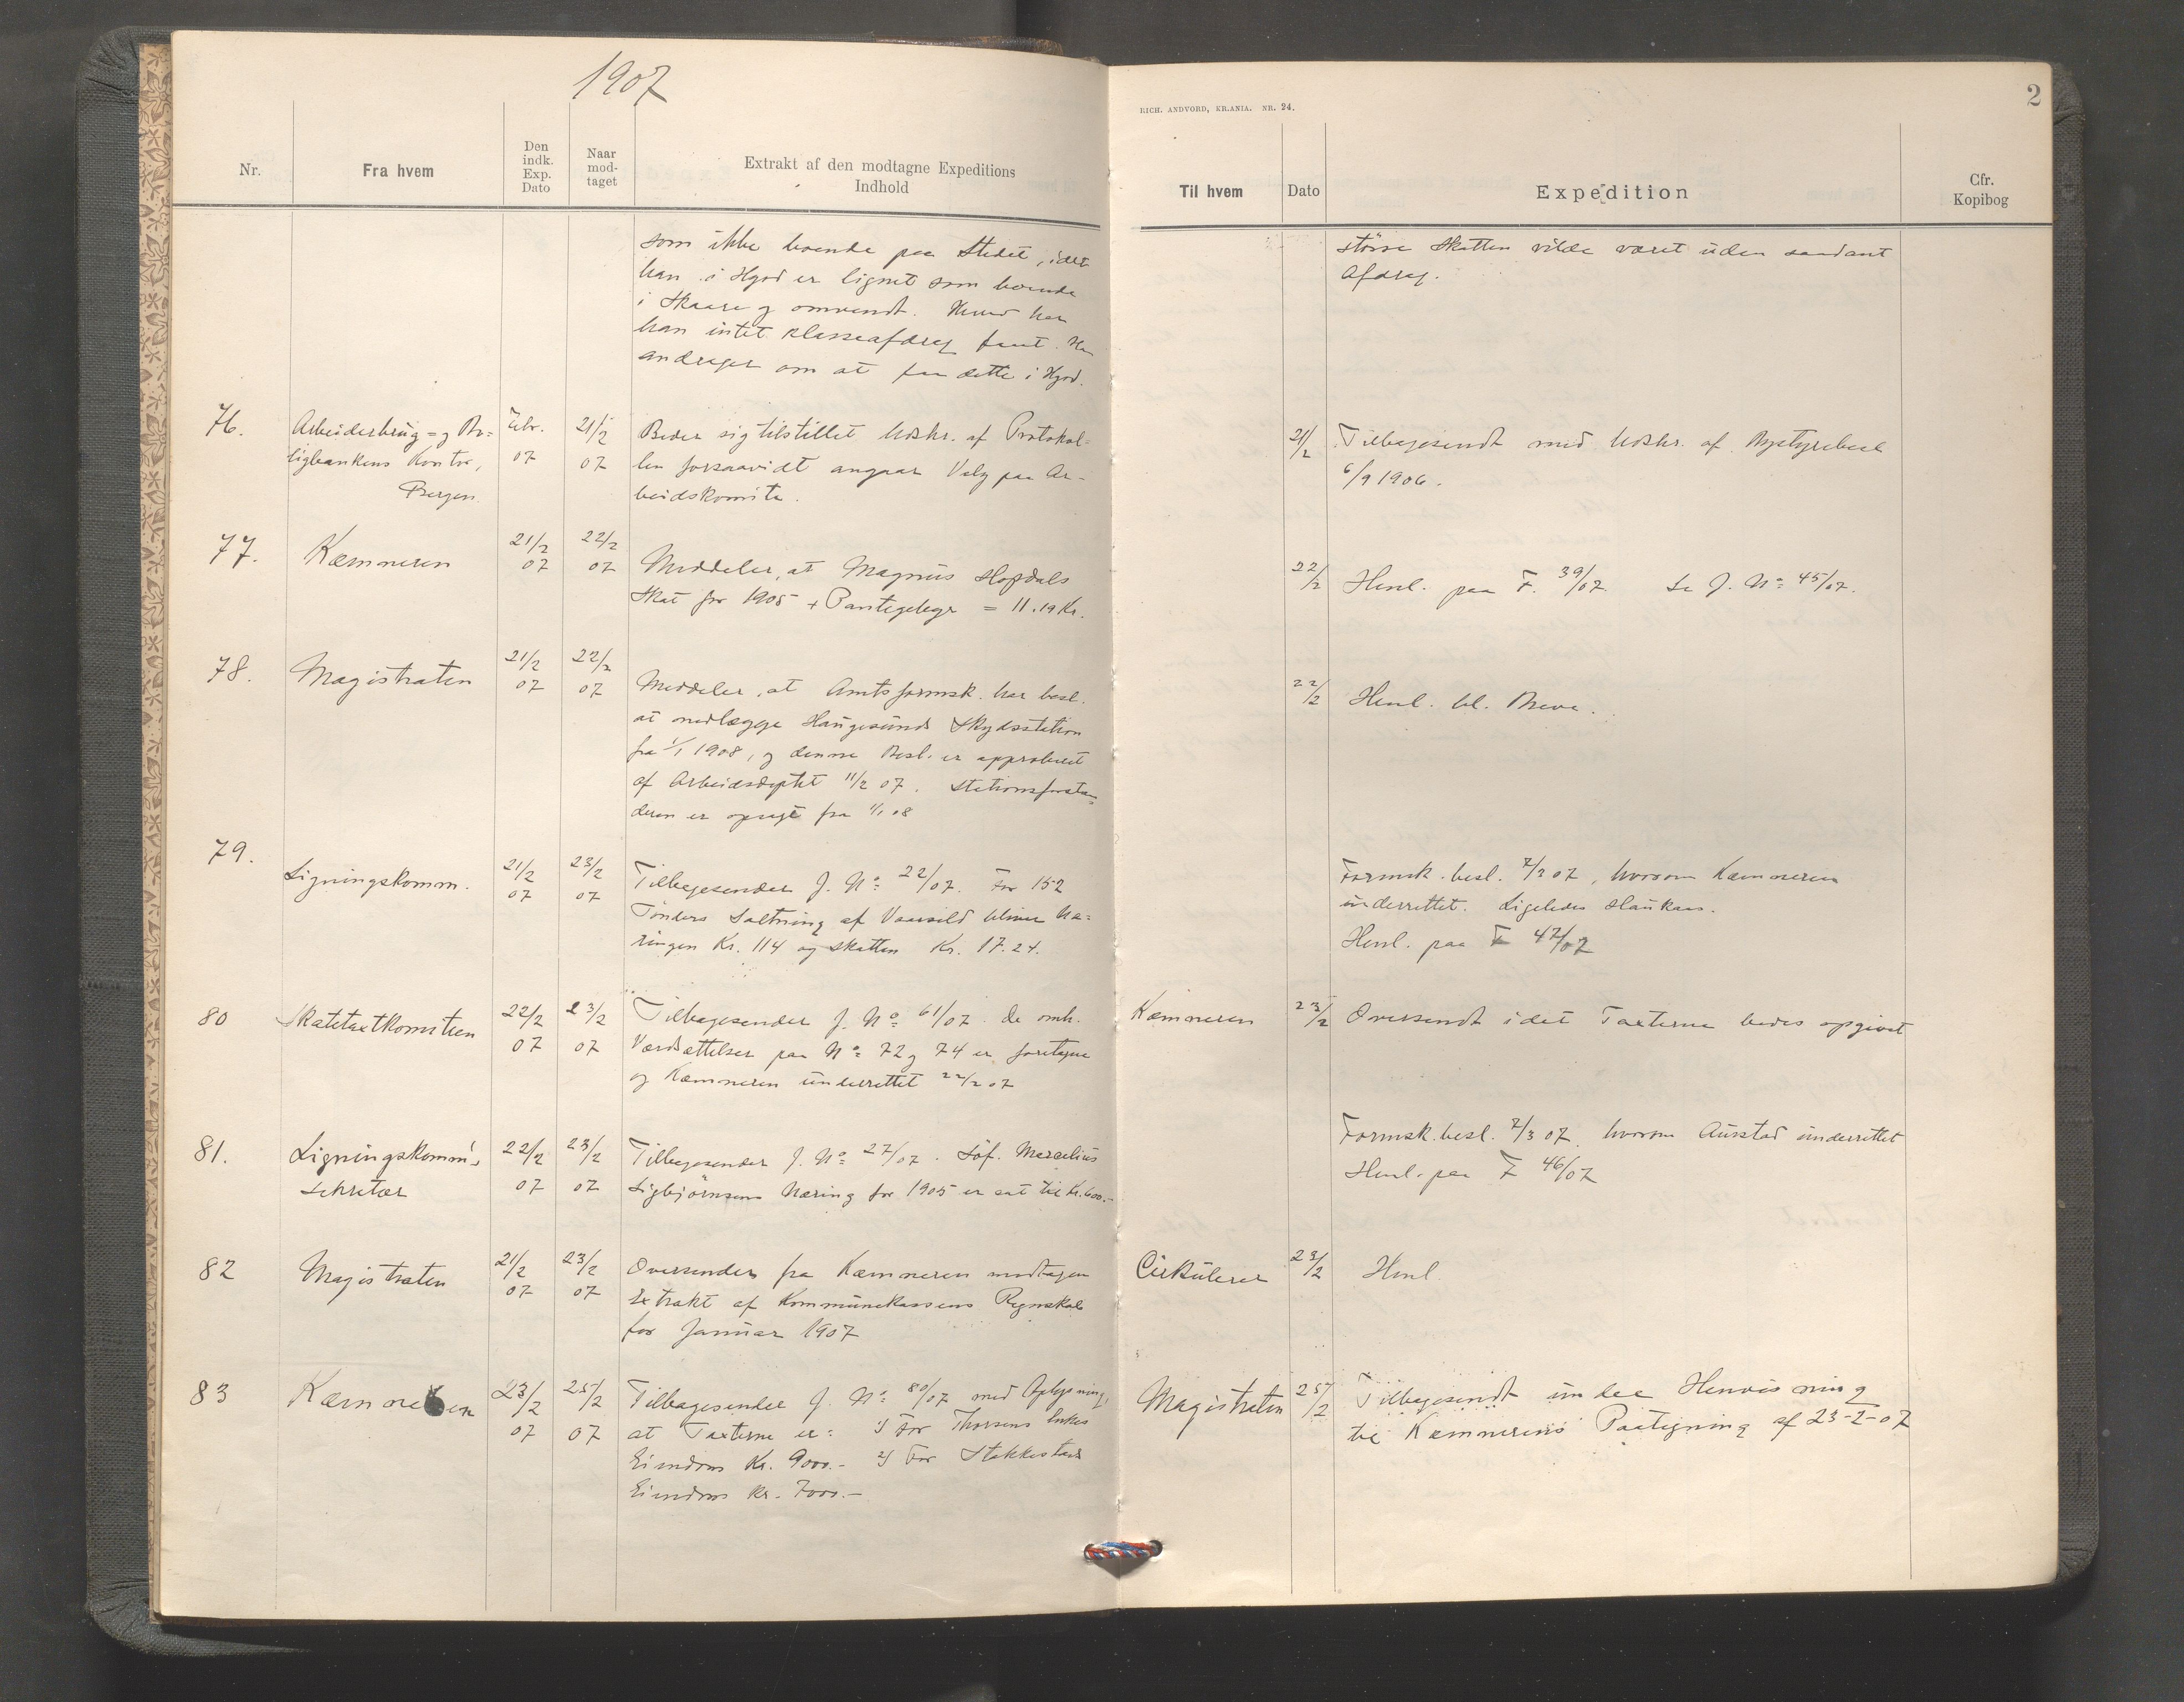 1907
Nr.
Fra hvem
Den
indk.
Exp.
Dato
Naar
mod-
taget
Extrakt af den modtagne Expeditions
Indhold
som ikke boende paa Stedet, idet
han i Hgsd er lignet som boende
i Skaare og omvendt. Hverd har
han intet Klasseafdrag faaet. Han
andrager om at faa dette i Hgsd.
76.
Arbeiderbrug= og Bo=
ligbankens Kontor,
Bergen.
Febr.
07
21/2
07
Beder sig tilstillet Udskr. af Protokol=
len forsaavidt angaar Valg paa Ar-
beidskomite.
77.
Kæmneren
21/2
07
22/2
07
Meddeler, at Magnus Hopdals
Skat for 1905 + Pantegebyr = 11.19 Kr.
78.
Magistraten
21/2
07
22/2
07
Meddeler, at Amtsformsk. har besl.
at nedlægge Haugesunds Skydsstation
fra 1/1 1908, og denne Besl. er approberet
af Arbeidsdeptet 11/2 07. Stationsforstan=
deren er opsagt fra 1/1 08
79.
Ligningskomm.
21/2
07
23/2
07
Tilbagesender J. No. 22/07. For 152
Tönders Saltning af Vaarsild bliver Næ=
ringen Kr. 114 og Skatten Kr. 17.24.
80
Skatetaxtkomiteen
22/2
07
23/2
07
Tilbagesender J. No. 61/07. De omh.
Værdsættelser paa No. 72 og 74 er foretagne
og Kæmneren underrettet 22/2 07
81.
Ligningskomm's
Sekretær
22/2
07
23/2
07
Tilbagesender J. No. 27/07. Söf. Marselius
Sigbjörnsens Næring for 1905 er sat til Kr. 600.-
82
Magistraten
21/2
07
23/2
07
Oversender fra Kæmneren modtagen
Extrakt af Kommunekassens Regnskab
for Januar 1907
83
Kæmneren
23/2
07
25/2
07
Tilbagesender J. No. 80/07 med Oplysning,
at Taxterne er: 1) For Thorsens Enkes
Eiendom Kr. 9000.- 2) For Stakkestads
Eiendom Kr. 7000.-
RICH. ANDVORD, KR.ANIA. NR. 24.
2
Til hvem
Dato
Expedition
Cfr.
Kopibog
större Skatten vilde været uden saadant
Afdrag.
21/2
Tilbagesendt med Udskr. af Bystyrebesl.
6/9 1906.
22/2
Henl. paa F. 39/07. Se J. No. 45/07.
22/2
Henl. bl. Breve.
Formsk. besl. 7/3 07, hvorom Kæmneren
underrettet. Ligeledes Haukaas.
Henl. paa F 47/07
Kæmneren
23/2
Oversendt idet Taxterne bedes opgivet
Formsk. besl. 7/3 07. hvorom Austad underrettet
Henl. paa F 46/07
Cirkulerer
23/2
Henl.
Magistraten
25/2
Tilbagesendt under Henvisning
til Kæmnerens Paategning af 23-2-07